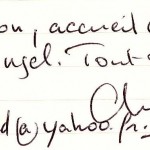 on, accueil
ngel. Tout
d@yahoo.fr.